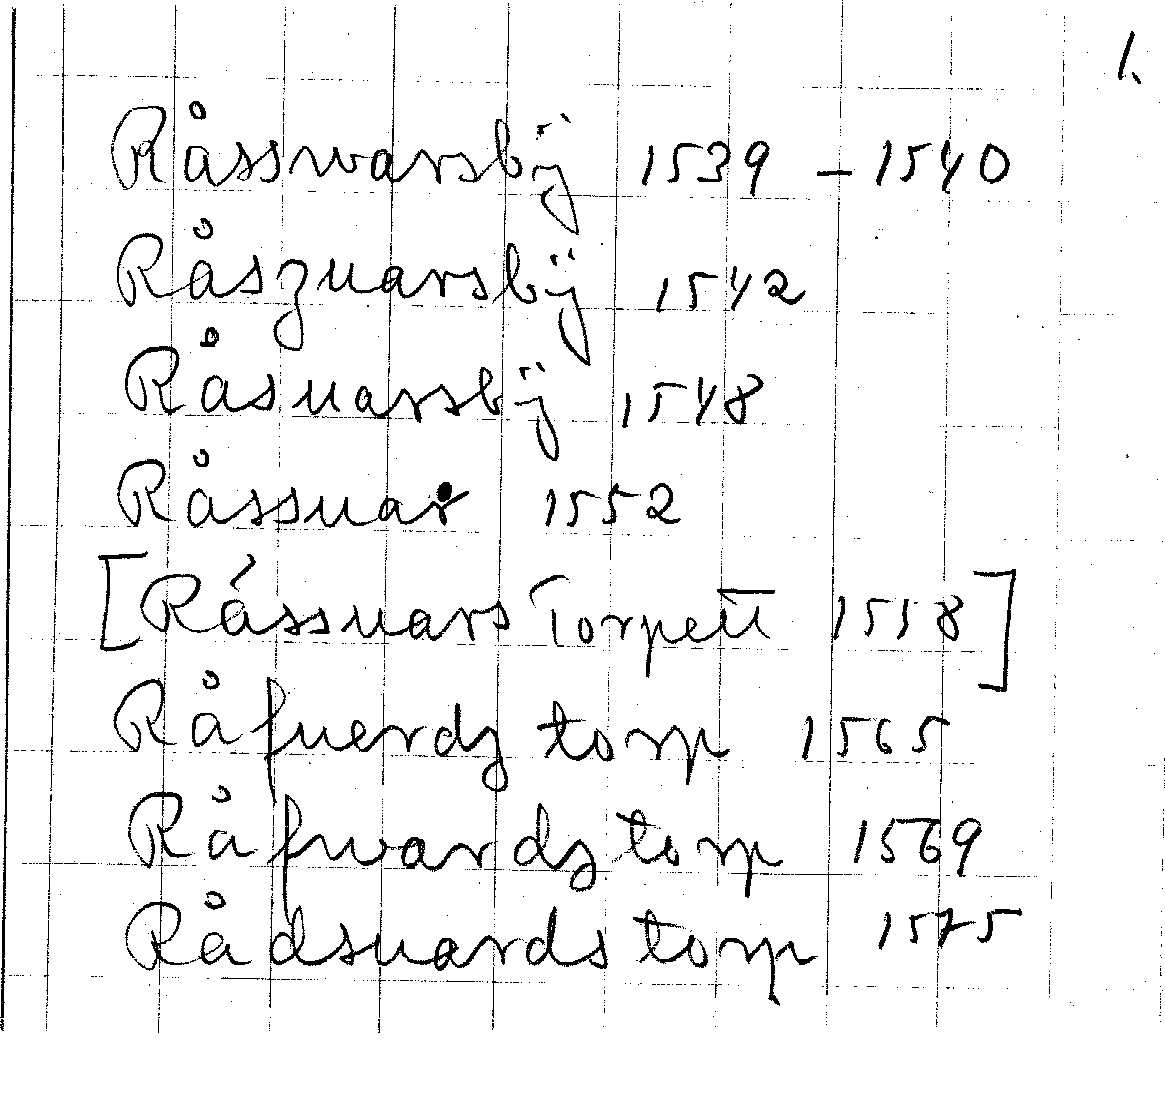 1.
Råsswarsbÿ 1539 – 1540
Råszuarsbÿ 1542
Råsuarsbÿ 1548
Råssuar 1552
[Rássuars Torpett 1558]
Råfuerdz torp 1565
Råfwardz torp 1569
Rådsuards torp 1575